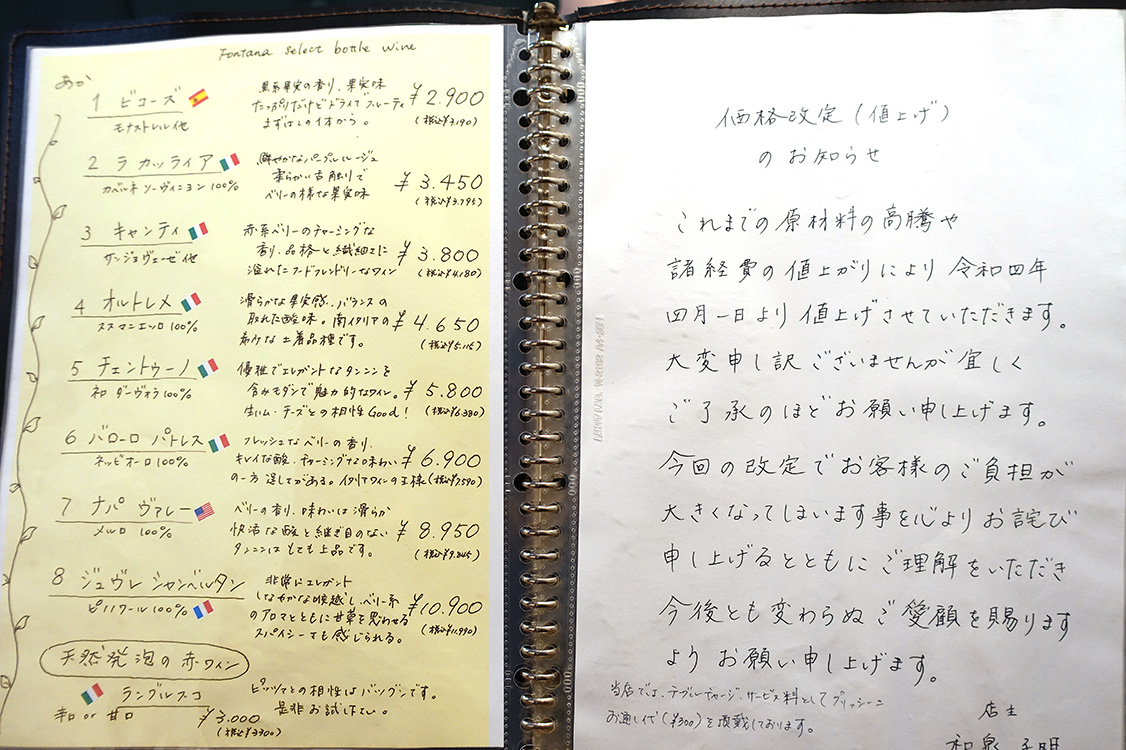 Fontana select bottle wine
あか
1 ビコーズ
モナストレル他
黒系果実の香り、果実味
たっぷりだけどドライでフルーティ
まずはこの1本から。
¥2.900
(税込¥3.190)
2 ラ カッライア
カベルネ ソーヴィニヨン 100%
鮮やかなパープルルージュ
柔らかい舌触りで
ベリーの様な果実味
¥3.450
(税込¥3.795)
3 キャンティ
サンジョヴェーゼ他
赤系ベリーのチャーミングな
香り、品格と繊細さに
溢れたフードフレンドリーなワイン
¥3.800
(税込¥4.180)
4 オルトレメ
ススマニエッロ 100%
滑らかな果実感、バランスの
取れた酸味。南イタリアの
な土着品種です。
¥4.650
(税込¥5.115)
5 チェントゥーノ
ネロ ダーヴォラ 100%
優雅でエレガントなタンニンを
含みモダンで魅力的なワイン。
生ハム・チーズとの相性Good!
¥5.800
(税込¥6.380)
6 バローロ パトレス
ネッビオーロ 100%
フレッシュなベリーの香り、
キレイな酸、チャーミングな味わい
の一方 逞しさがある。イタリアワインの王様
¥6.900
(税込¥7.590)
7 ナパ ヴァレー
メルロ 100%
ベリーの香り、味わいは滑らか
快活な酸と継ぎ目のない
タンニンはとても上品です。
¥8.950
(税込¥9.845)
8 ジュヴレ シャンベルタン
ピノノワール 100%
非常にエレガント
しなやかな喉越し、ベリー系
のアロマとともに甘草を思わせる
スパイシーさも感じられる。
¥10.900
(税込¥11.990)
天然発泡の赤ワイン
ランブルスコ
辛口 or 甘口
¥3.000
(税込¥3300)
ピッツァとの相性はバツグンです。
是非お試し下さい。
価格改定(値上げ)
のお知らせ
これまでの原材料の高騰や
諸経費の値上がりにより 令和四年
四月一日より値上げさせていただきます。
大変申し訳ございませんが宜しく
ご了承のほどお願い申し上げます。
今回の改定でお客様のご負担が
大きくなってしまいます事を心よりお詫び
申し上げるとともにご理解をいただき
今後とも変わらぬご愛顧を賜ります
よりお願い申し上げます。
当店では、テーブルチャージ、サービス料としてグリッシーニ
お通し代(¥300)を頂戴しております。
店主